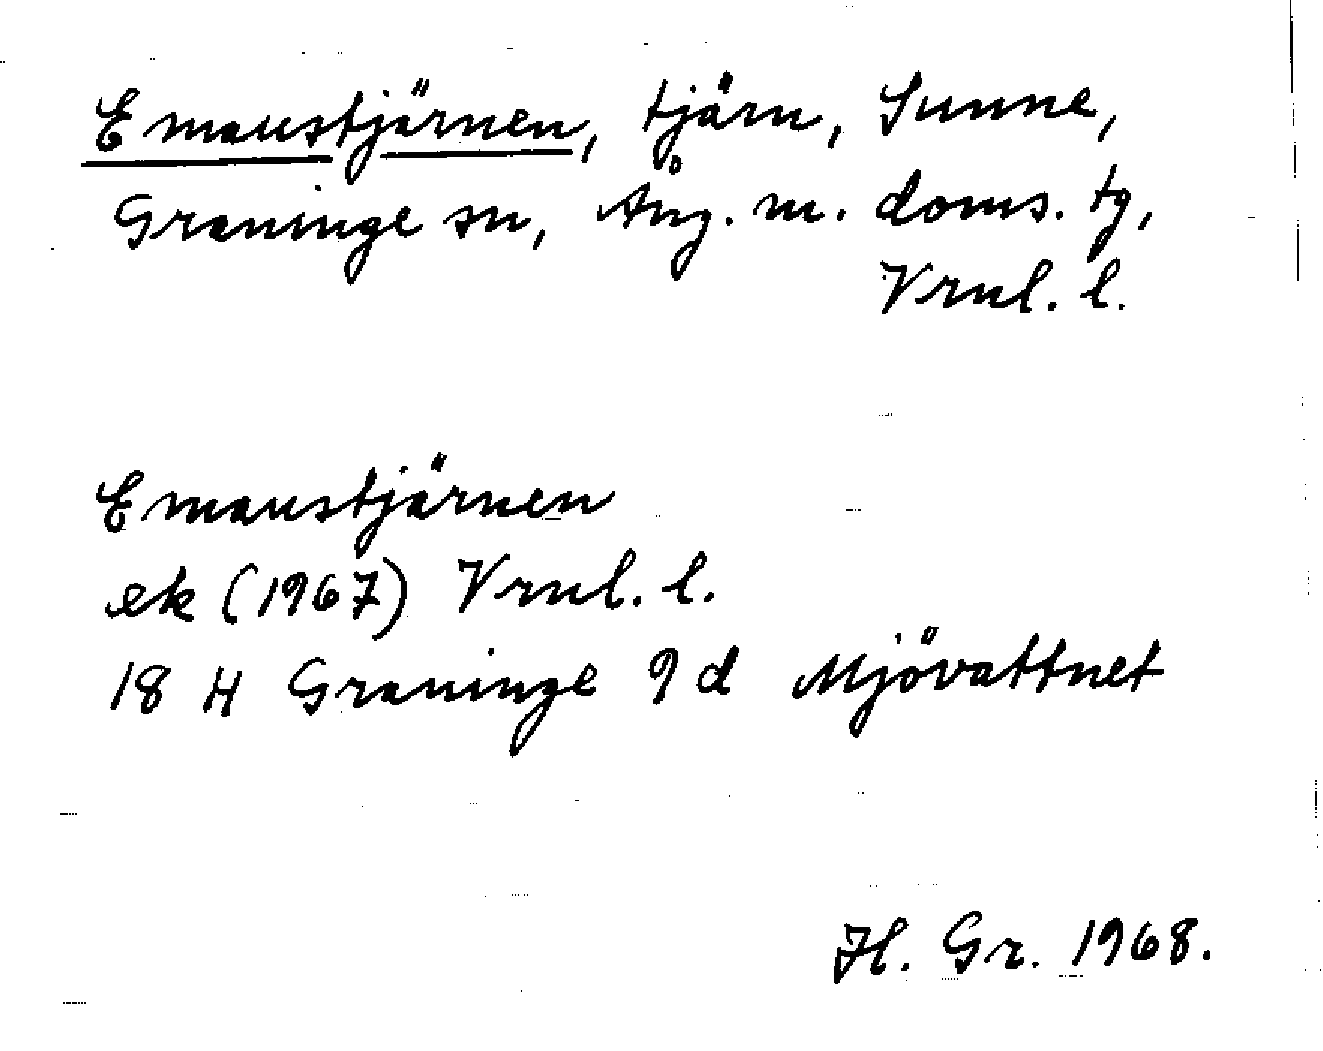 Emaustjärnen, tjärn, Sunne,
Graninge sn, Ång. m. doms. tg,
Vrnl. l.
Emaustjärnen
ek (1967) Vrnl. l.
18 H Graninge 9 d Mjövattnet
Hl. Gr. 1968.